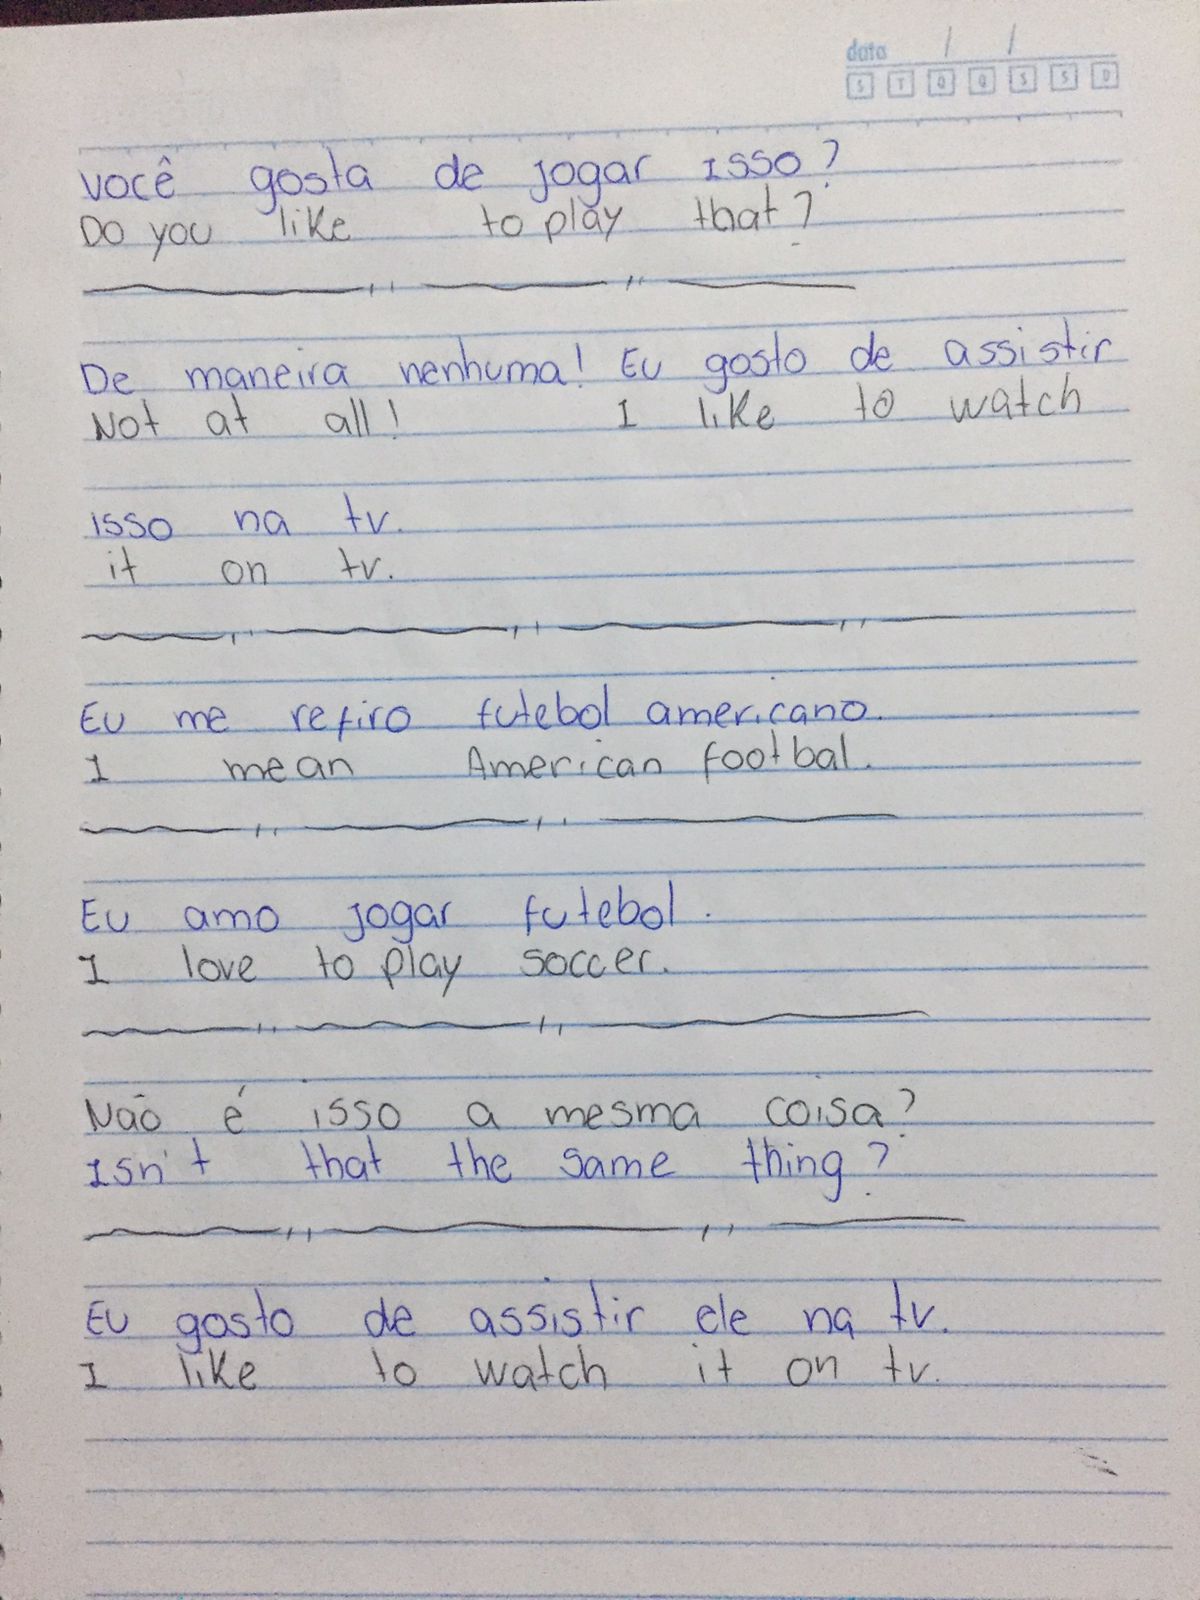 data / /
S T Q Q S S D
você gosta de jogar isso?
Do you like to play that?
De maneira nenhuma! Eu gosto de assistir
Not at all! I like to watch
isso na tv.
it on tv.
Eu me refiro futebol americano.
I mean American footbal.
Eu amo jogar futebol.
I love to play soccer.
Não é isso a mesma coisa?
Isn't that the same thing?
Eu gosto de assistir ele na tv.
I like to watch it on tv.